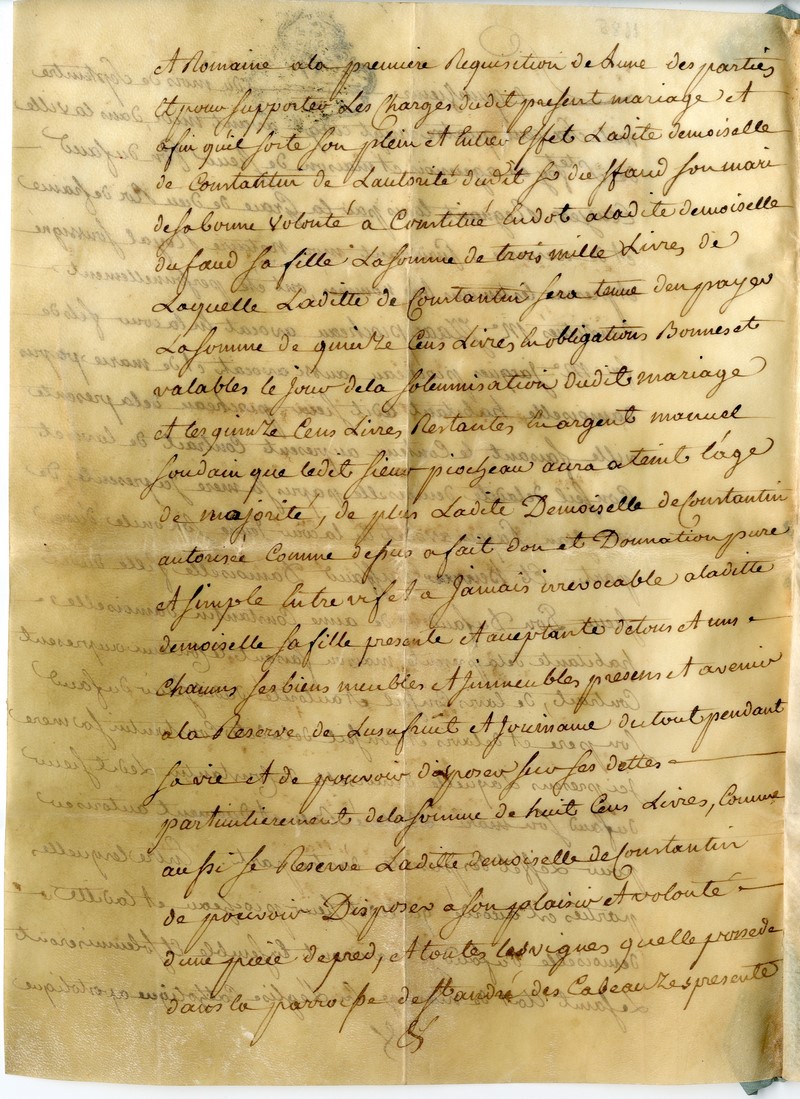 et Romaine ala premiere Requisition de Lune des parties
Et pour supporter Les Charges dudit present mariage et
afin quil sorte son plein et Entier Effet Ladite demoiselle
de Constantin de Lautorité dudit Sr du ffaud son mari
desabonne volonté a Constitué Endot aladite demoiselle
dufaud sa fille Lasomme de trois mille Livres de
Laquelle Laditte de Constantin sera tenue den payer
Lasomme de quinze Cens Livres En obligations Bonnes et
valables le jour dela solemnisation dudit mariage
et les quinze Cens Livres Restantes En argent manuel
soudain que ledit sieur piocheau aura ateint l'age
de majorité, de plus Ladite Demoiselle de Constantin
autorisée Comme depus a fait don et Donnation pure
et simple Entre vif et a Jamais irrevocable aladitte
demoiselle sa fille presente et aceptante detous et uns
Chacuns ses biens meubles et immeubles presens et avenir
ala Reserve de Lusufruit et Jouissance du tout pendant
sa vie et de pouvoir disposer sur ses dettes
particulierement delasomme de huit Cens Livres, Comme
aussi se Reserve Laditte demoiselle de Constantin
de pouvoir Disposer a son plaisir et volonté
dune piece de pred, et toutes les vignes quelle possede
dans la parroisse de St andré des Cabeauzes presente